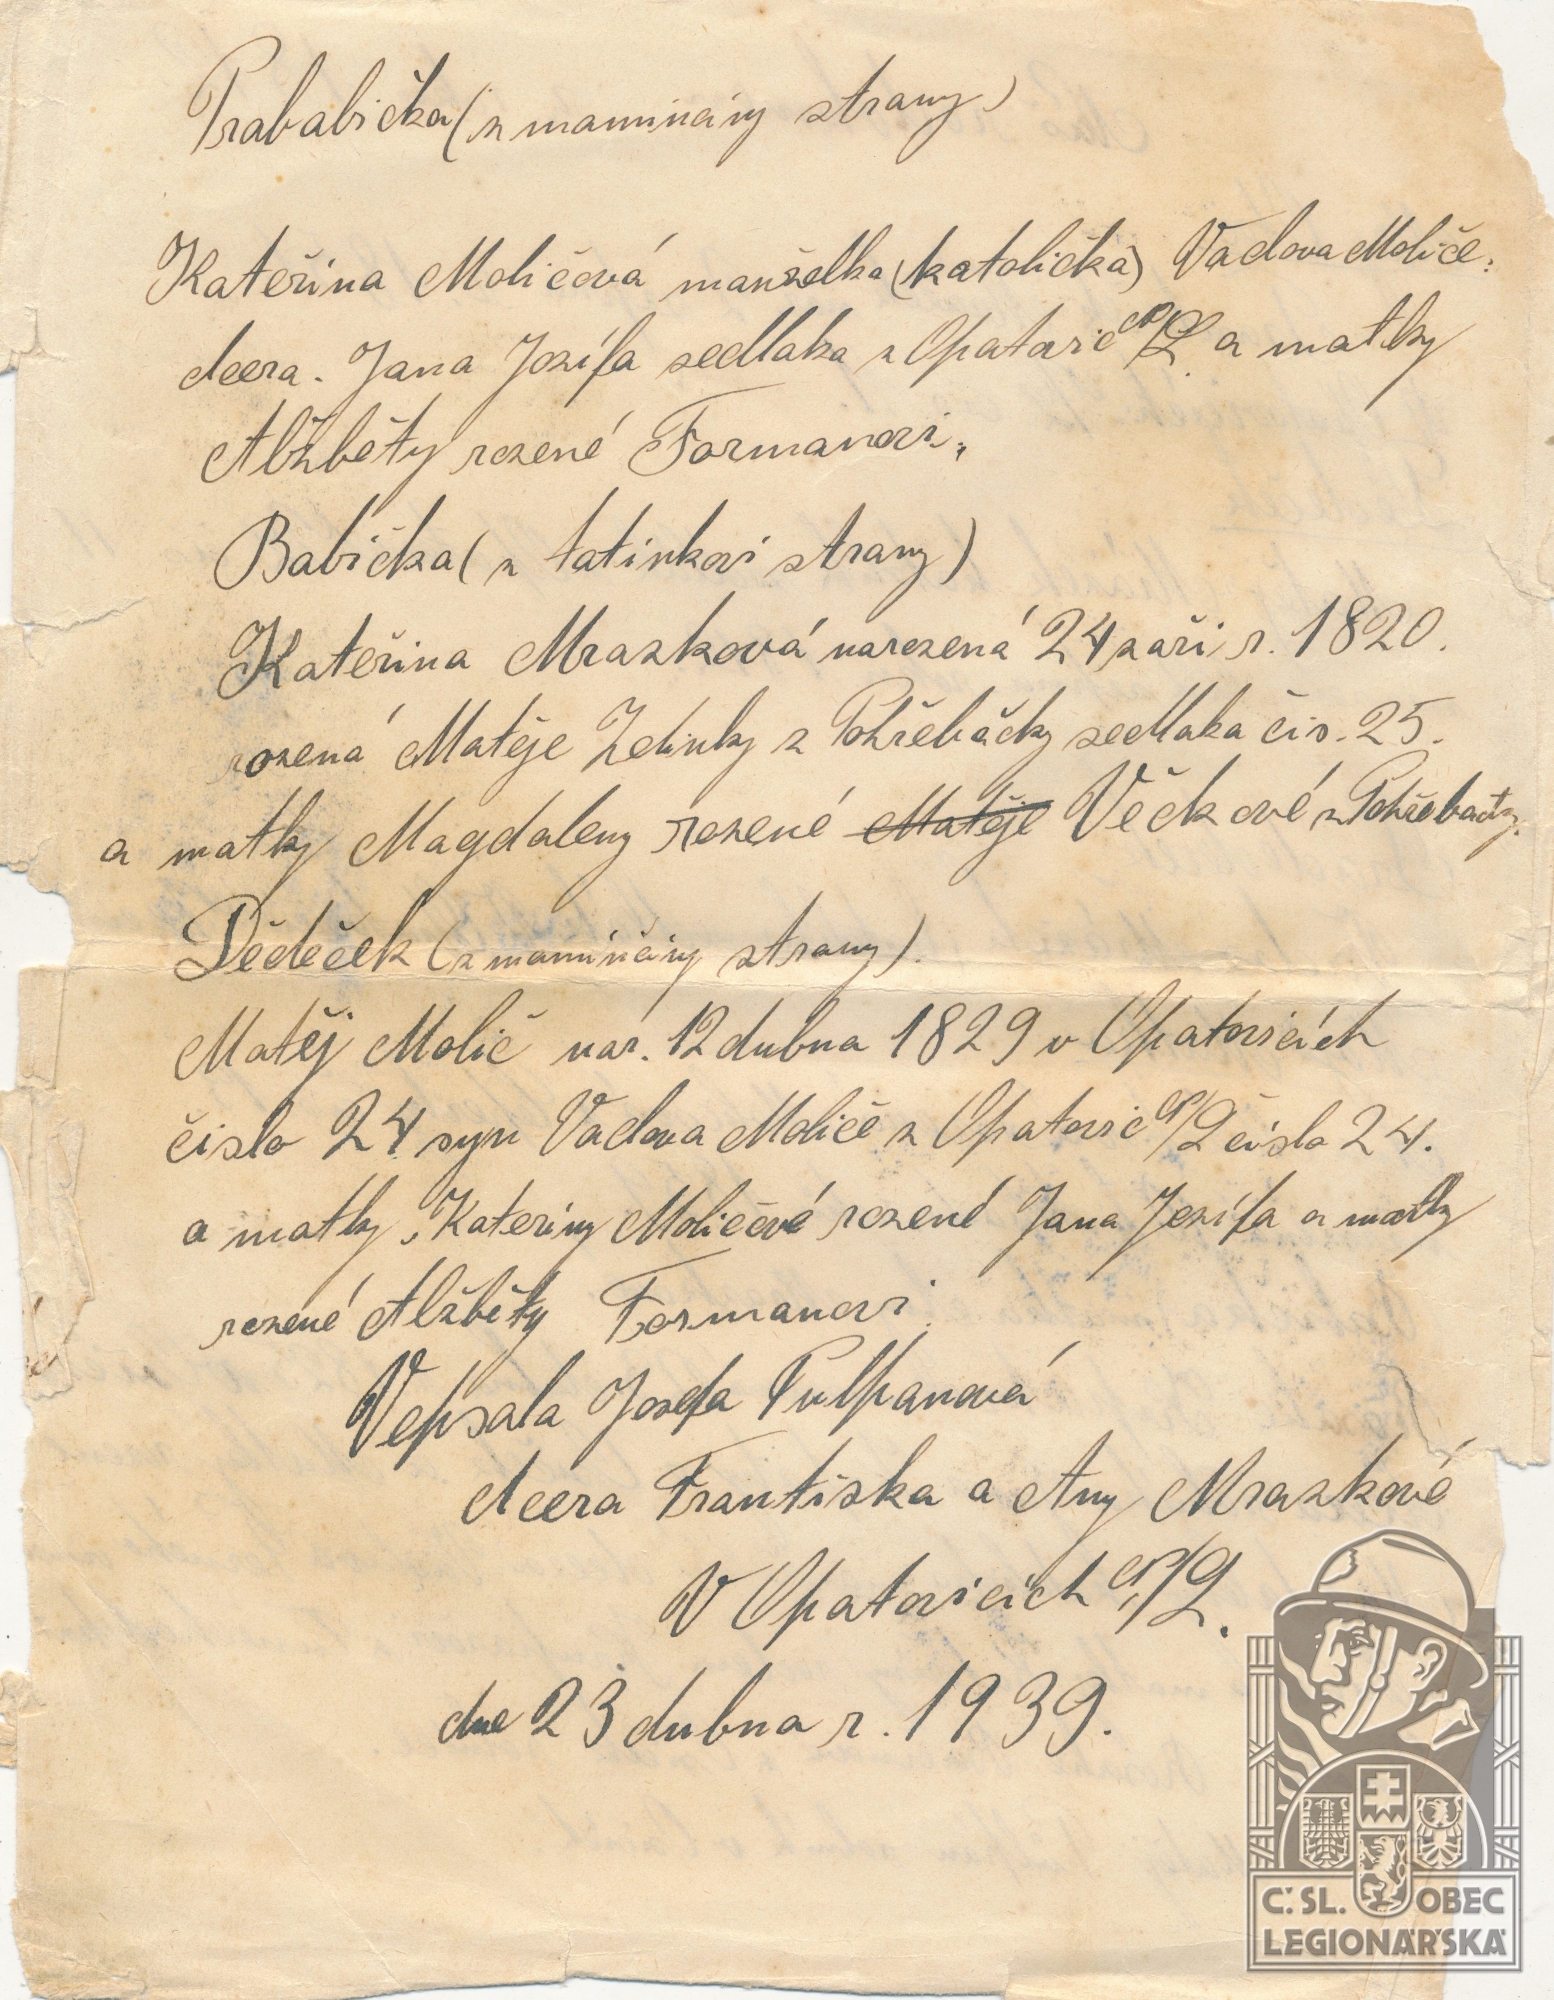 Prababička (z maminčiny strany)
Kateřina Moličová manželka (katolička) Vaclova Moliče.
dcera. Jana Jozífa sedlaka z Opatovic n/L. a matky
Alžběty rozené Formanovi.
Babička (z tatinkovi strany)
Kateřina Mrazková narozená 24 zaři r. 1820.
rozená Matěje Zelinky z Pohřebačky sedlaka čis. 25.
a matky Magdaleny rozené Matěje Věčkové z Pohřebačky.
Dědeček (z maminčiny strany).
Matěj Molič nar. 12 dubna 1829 v Opatovicích
čislo 24 syn Vaclova Moliče z Opatovic n/L čislo 24.
a matky Kateriny Moličové rozené Jana Jozífa a matky
rozené Alžběty Formanovi.
Vepsala Josefa Pulpanová
dcera Františka a Any Mrazkové
V Opatovicích n/L.
dne 23 dubna r. 1939.
Č. SL. OBEC
LEGIONÁŘSKÁ